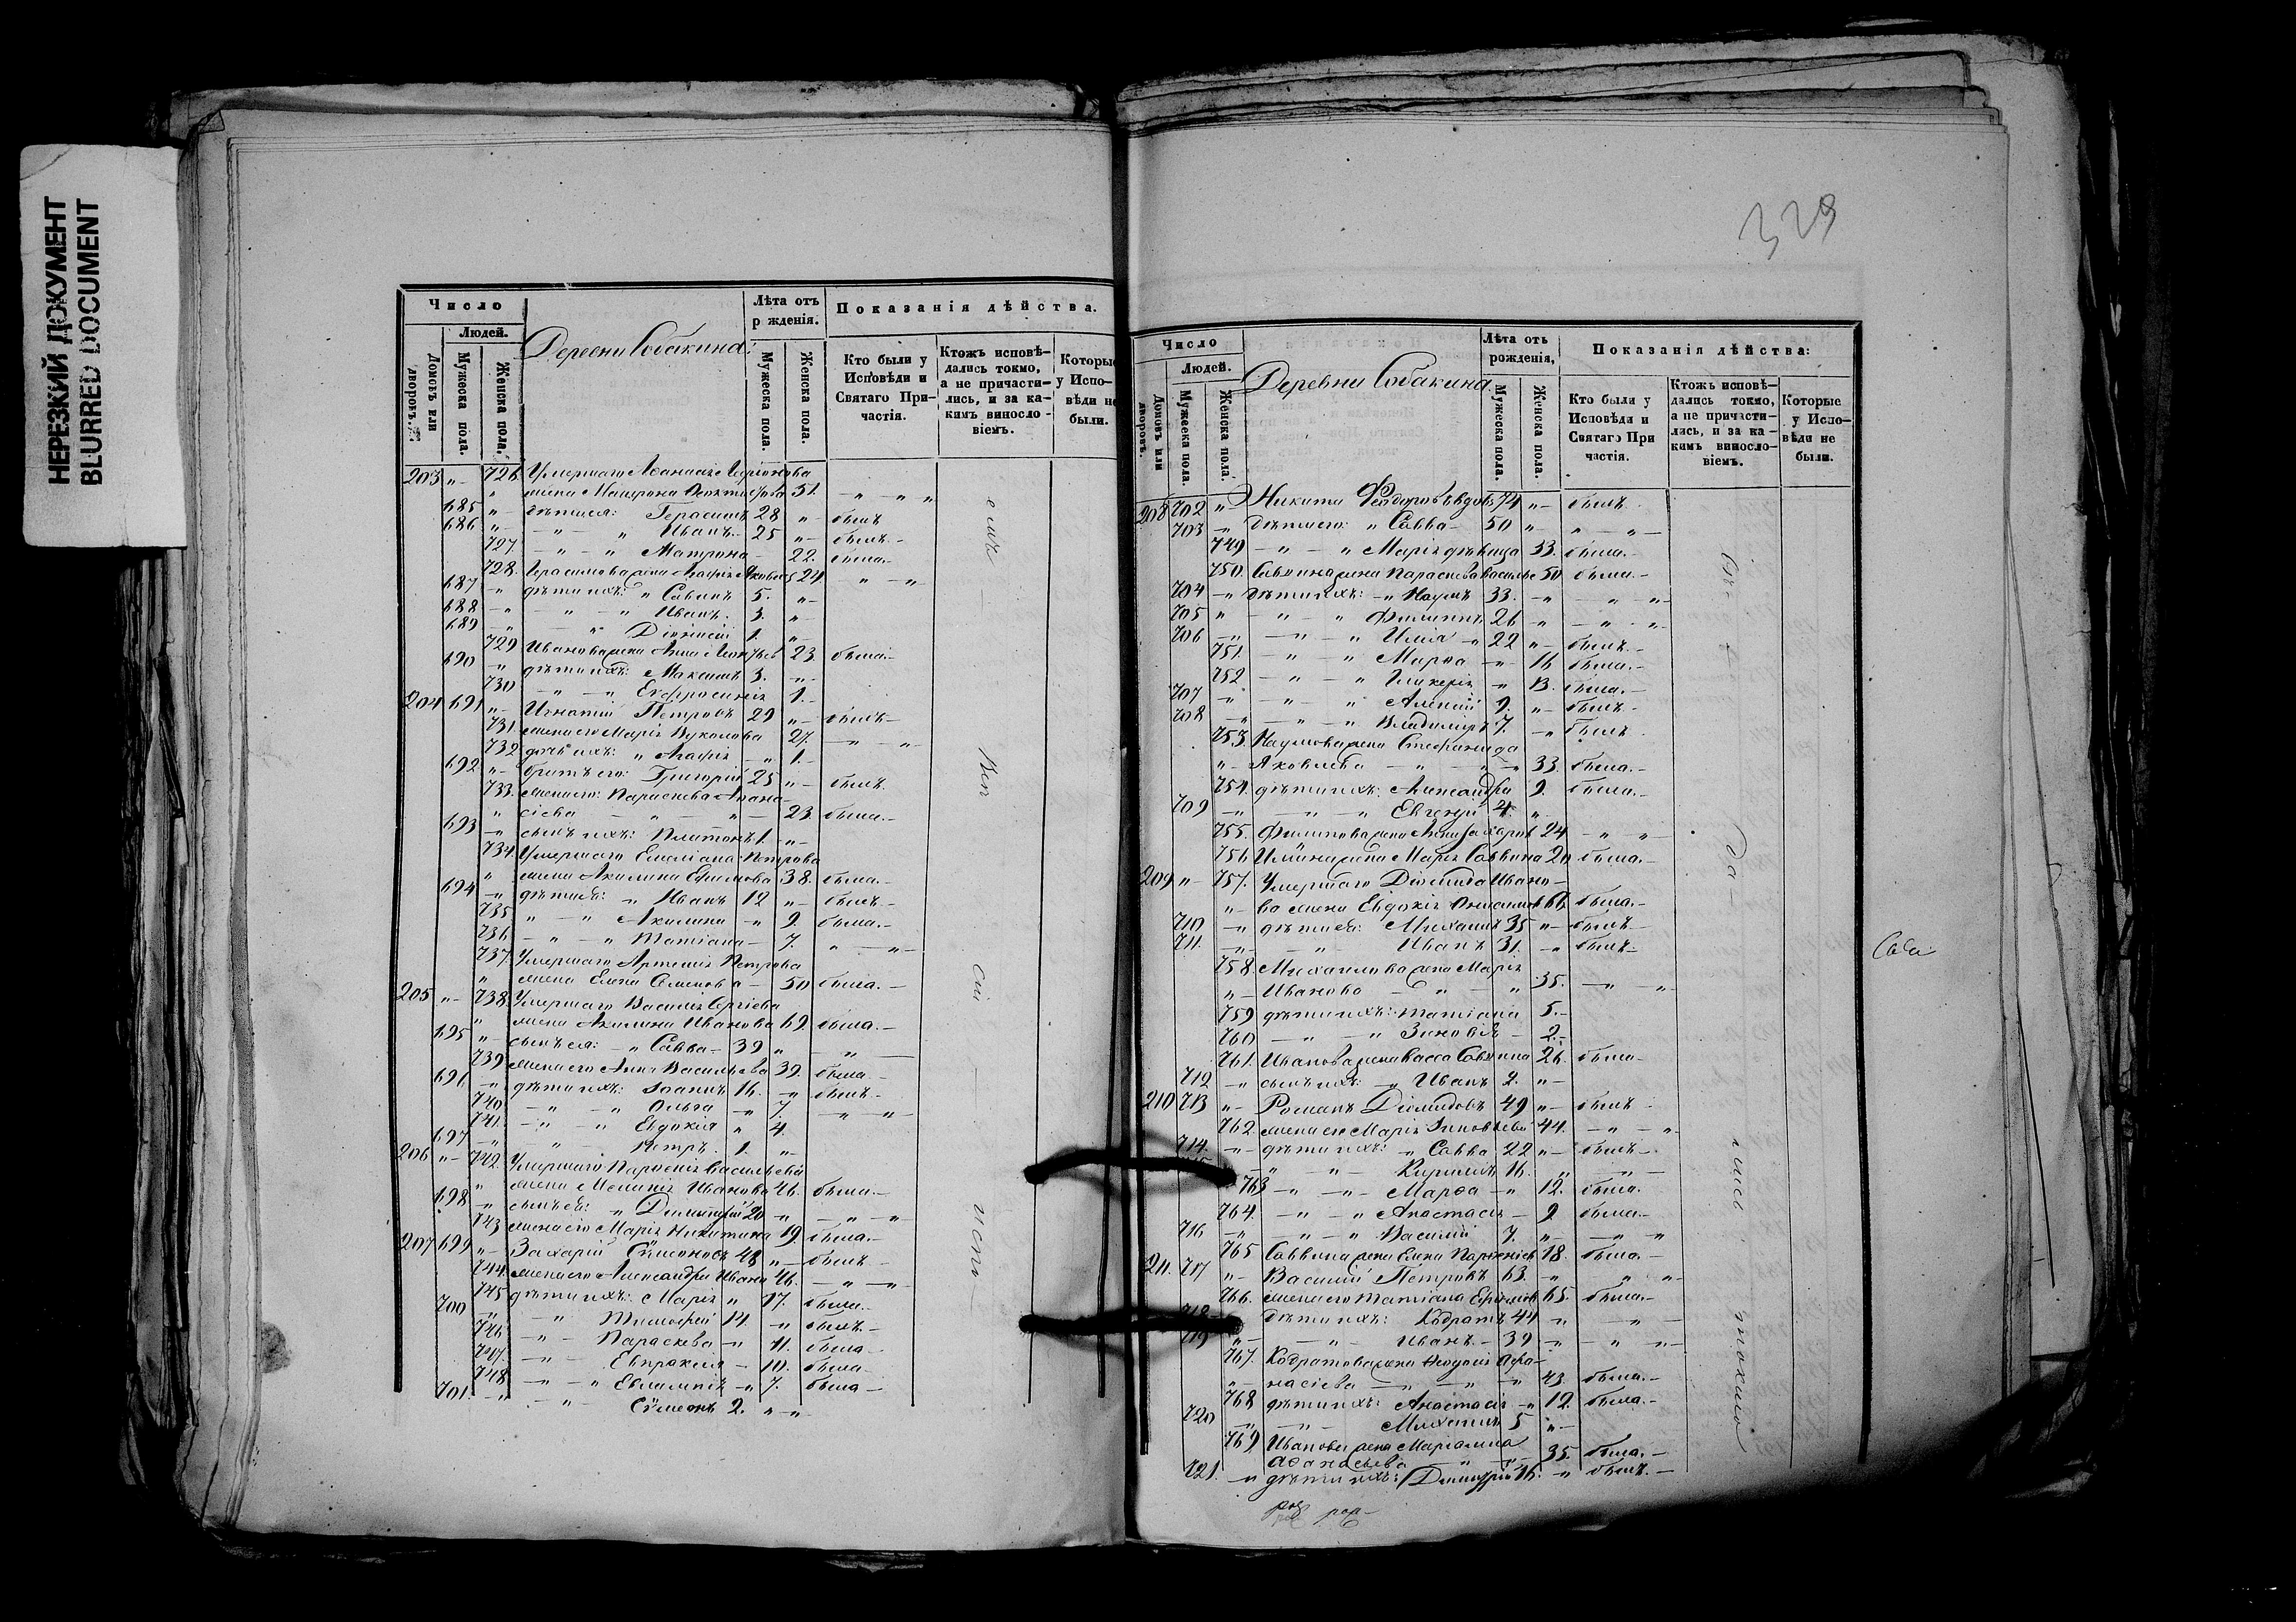 НЕРЕЗКИЙ ДОКУМЕНТ
BLURRED DOCUMENT
Число
Людей.
Домовъ или дворовъ.
Мужеска пола.
Женска пола.
Деревни Собакина:
Лѣта отъ р жденія.
Мужеска пола.
Женска пола.
Показанія дѣйства.
Кто были у Исповѣди и Святаго При-
частія.
Ктожъ исповѣ-
дались токмо,
а не причасти-
лись, и за ка-
кимъ винносло-
віемъ.
Которые
у Испо-
вѣди не
были.
203 "- 726. Умершаго Аѳанасія
" жена Матрона 51. - " "
685 "- дѣти ея: Герасимъ 28 "- былъ
686 "- - " - " Иванъ 25 "- былъ-
727. - " - " Матрона - 22. была-
728. Герасимова жена Агафія Яковлев 24 " -"
687 -" дѣти ихъ: " Савинъ 5. "-
688 -" - " - " Иванъ 3. "-
689 -" - " Діонисій 1. "-
729 Иванова жена Анна 23 была.-
690 -" дѣти ихъ: Максимъ 3. "-
730 - " - " Евфросинія 1. -
204 691 "- Игнатій Петровъ 29 "- былъ-
731. жена его Марія Вуколова 27. - " "
732 дочь ихъ: " Агафія -" 1. -
692 "- братъ его: Григорій 25 "- былъ
733. жена его: Параскева Афана-
" сіева - " - " - 23. была.-
693 -" сынъ ихъ: Платонъ 1. "-
734. Умершаго Емеліана Петрова
" жена Акилина Ефимова 38. была.-
694 -" дѣти ея: " Иванъ 12 "- былъ-
735 " -" Акилина -" 9. была.-
736 - " - " Татіана - 7. " -"-
737. Умершаго Артемія Петрова
" жена Елена Семенова - 50 была.-
205 "- 738. Умершаго Василія Сергіева
" жена Акилина Иванова 69 была.-
695 "- сынъ ея: -" Савва - 39 " - " -
739 жена его Анна Васильева 39. была.-
696 -" дѣти ихъ: Іоаннъ 16. -" былъ-
740 - " - " Ольга -" 7. " -"
741. - " - " Евдокія " 4.
697 -" " Петръ. 1. "-
206 "- 742. Умершаго Парѳенія Васильева
" жена Меланія Иванова 46. была.-
698 -" сынъ ея: " Димитрій 20 " - " -"
743 жена его Марія Никитина 19. была.-
207 699 "- Захарій Сѵмеоновъ 48 "- былъ-
744. жена его Александра Ивано 46. - " -"
745 дѣти ихъ: Марія " 17. была.-
700 -" -" Тимофей 14. -" былъ-
746 -" - Параскева -" 11. была-
747. -" - Евпраксія - 10. была-
748 -" -" Евлампія -" 7. была-
701. -" - " - Сѵмеонъ 2. "-
емъ - Вси сіи испо-
329
Число
Людей.
Домовъ или дворовъ.
Мужеска пола.
Женска пола.
Деревни Собакина.
Лѣта отъ рожденія,
Мужеска пола.
Женска пола.
Показанія дѣйства:
Кто были у
Исповѣди и
Святаго При
частія.
Ктожъ исповѣ-
дались токмо,
а не причасти-
лись, и за ка-
кимъ винносло-
віемъ.
Которые
у Испо-
вѣди не
были.
208 702 " Никита Феодоровъ вдов: 74 "- былъ-
703 -" дѣти его: " Савва - 50 "- " -"-
749 -" -" Марія дѣвица 33. была.-
750. Саввина жена Параскева Василье 50 была.-
704 -" дѣти ихъ: -" Наумъ 33. -" - " "-
705 " - " - " Филиппъ 26 -" - " "-
706 -" -" - " Илія -" 22 "- былъ.-
751. - " - " Марѳа -" 16 была.-
752 - " - " Гликерія -" 13. была.-
707 -" - " - " Алексій 9. "- былъ-
708 -" - " - " Владиміръ 7. -" былъ-
753. Наумова жена Стефанида
"- Яковлева - " - " 33. была.-
754. дѣти ихъ: Александра 9. была.-
709 -" -" -" Евгеній 4. "
755. Филипова жена Анна Захаров 24 -" "-
756. Иліина жена Марія Саввина 20 была.-
209 "- 757. Умершаго Діомида Ивано-
"- ва жена Евдокія 66. была.-
710 -" дѣти ея: Михаилъ 35 "- былъ-
711. -" -" Иванъ 31. -" былъ-
758. Михаилова жена Марія
"- Иванова - " - " 35. -" -"
759 дѣти ихъ: Татіана 5.-
760 - " -" Зиновія - 2.-
761. Иванова жена Васса Саввина 26. была-
712 -" сынъ ихъ: -" Иванъ 2. "-
210 713 "- Романъ Діомидовъ 49 "- былъ-
762. жена его Марія 44. -" -"
714. -" дѣти ихъ: " Савва 22 "- былъ-
-" -" - Кириллъ 16. "- -"-
763 -" -"- Марѳа -" 12. была.
764. -" -" Анастасія - 9 была.-
716 -" "- -" Василій 7. "- -" "
765 Саввина жена Елена Парѳеніев 18. была.-
211. 717 "- Василій Петровъ 63. -" " "-
766. жена его Татіана 65. была.-
718 дѣти ихъ: Кодратъ 44 -" -" -
719 "- -"- Иванъ - 39 -" " "-
767. Кодратова жена Ѳеодосія Афа-
"- насіева -" -" -" 43. была.-
768 дѣти ихъ: Анастасія -" 12. была.-
720 -" -" Михаилъ 5 "-
769 Иванова жена Маріамна
Аѳанасьева -" -" 35. была.-
721. -" дѣти ихъ: Димитрій 16. -" былъ.-
да- лись токмо
Соба